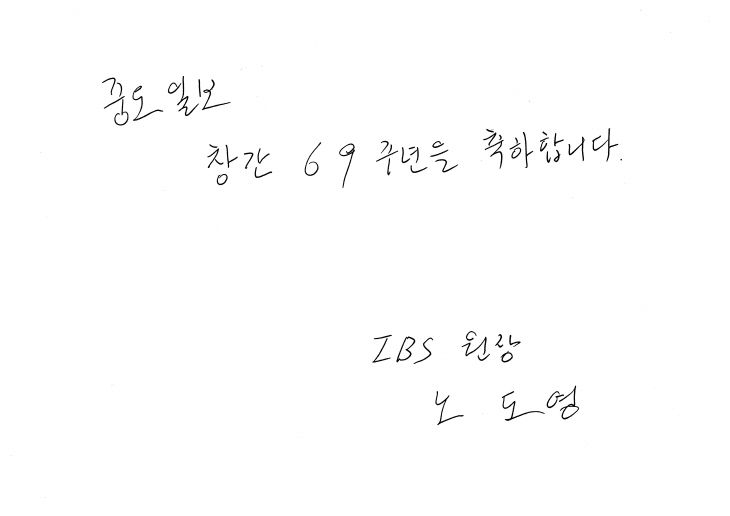 중도일보
창간 69 주년을 축하합니다.
IBS 원장
노 도영